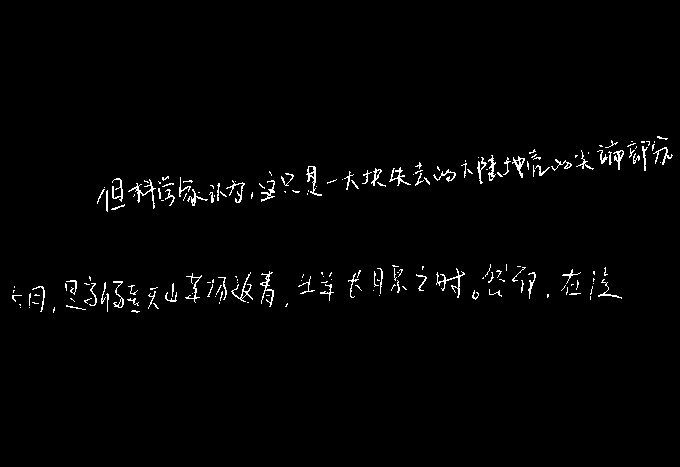 但科学家认为，这只是一大块失去的大陆地壳的尖端部分
五月，是新疆天山草场返青，牛羊长膘之时。然而，在这